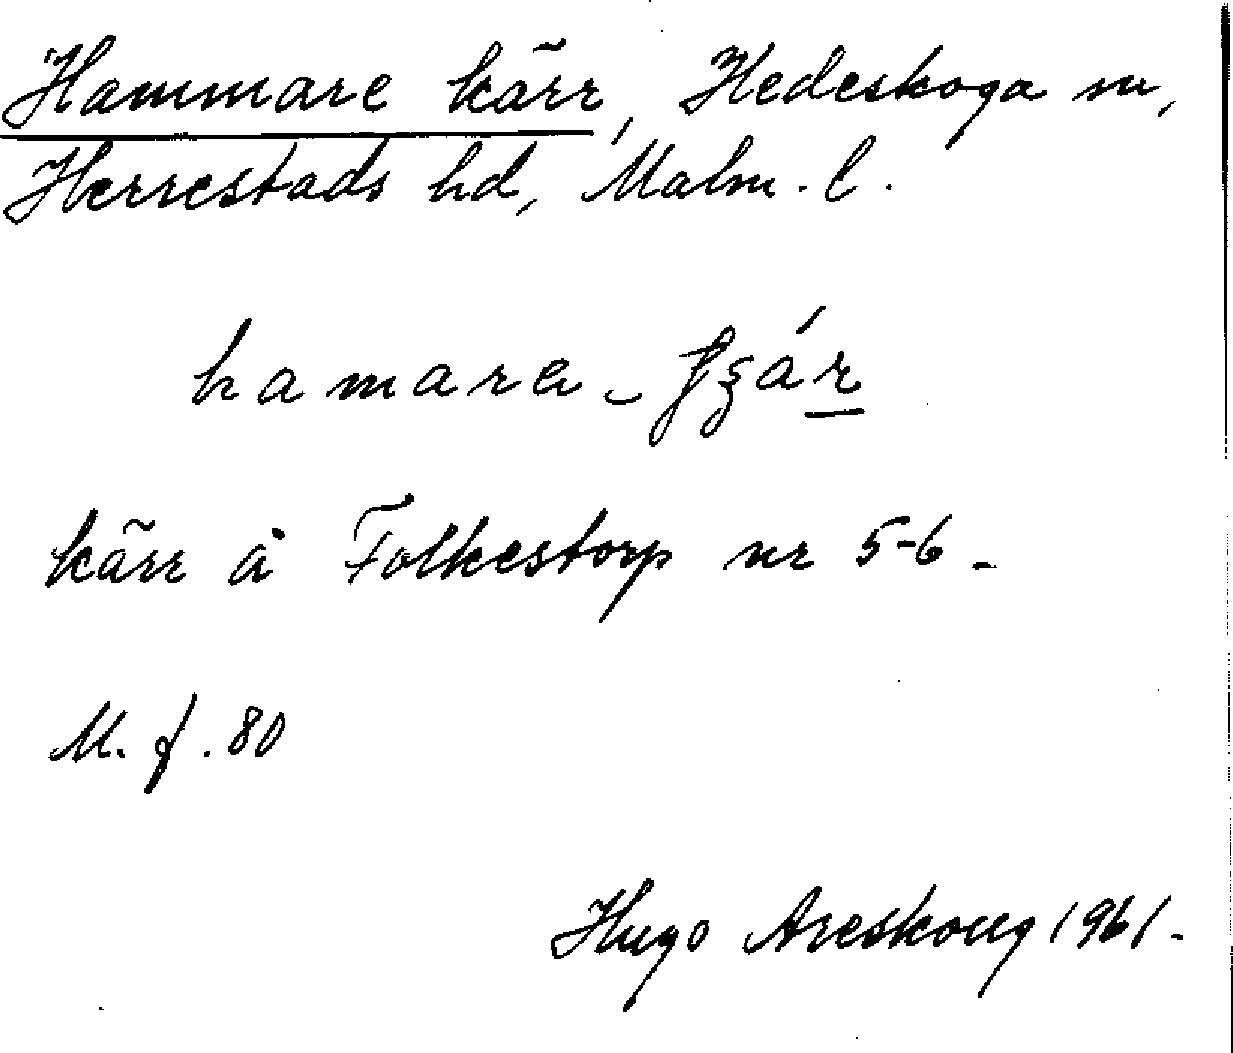 Hammare kärr, Hedeskoga sn,
Herrestads hd, Malm. l.
kärr å Folkestorp nr 5-6.
M. f. 80
Hugo Areskoug 1961.